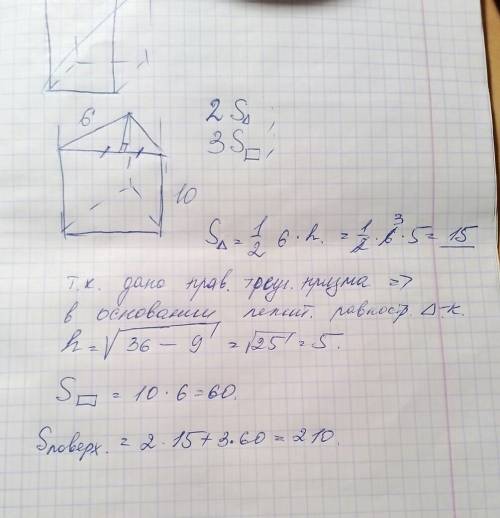 6
2 S△;
3 S▭;
10
S△ = 1/2 6 · h. = 1/2 · 6 3 · 5 = 15
т.к. дано прав. треуг. призма =>
в основании лежит. равност. △-к.
h = √36 − 9 = √25 = 5.
S▭ = 10 · 6 = 60.
Sповерх. = 2 · 15 + 3 · 60 = 210.